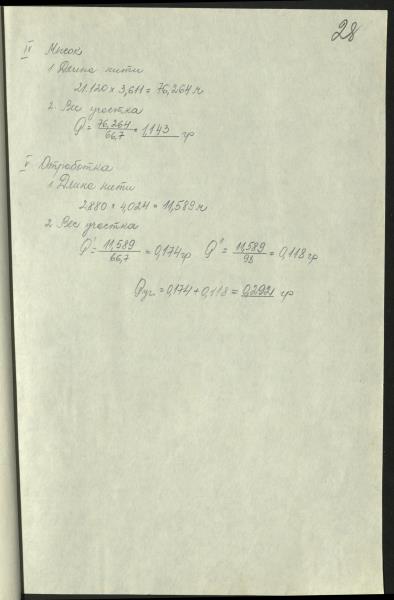 28
IV Мысок
1 Длина нити
21.120 × 3,611 = 76,264 м
2. Вес участка
Q = 76,264 / 66,7 = 1,143 гр
V Отработка
1 Длина нити
2880 × 4,024 = 11,589 м
2. Вес участка
Q' = 11,589 / 66,7 = 0,174 гр Q" = 11,589 / 98 = 0,118 гр
Qуч. = 0,174 + 0,118 = 0,292 гр